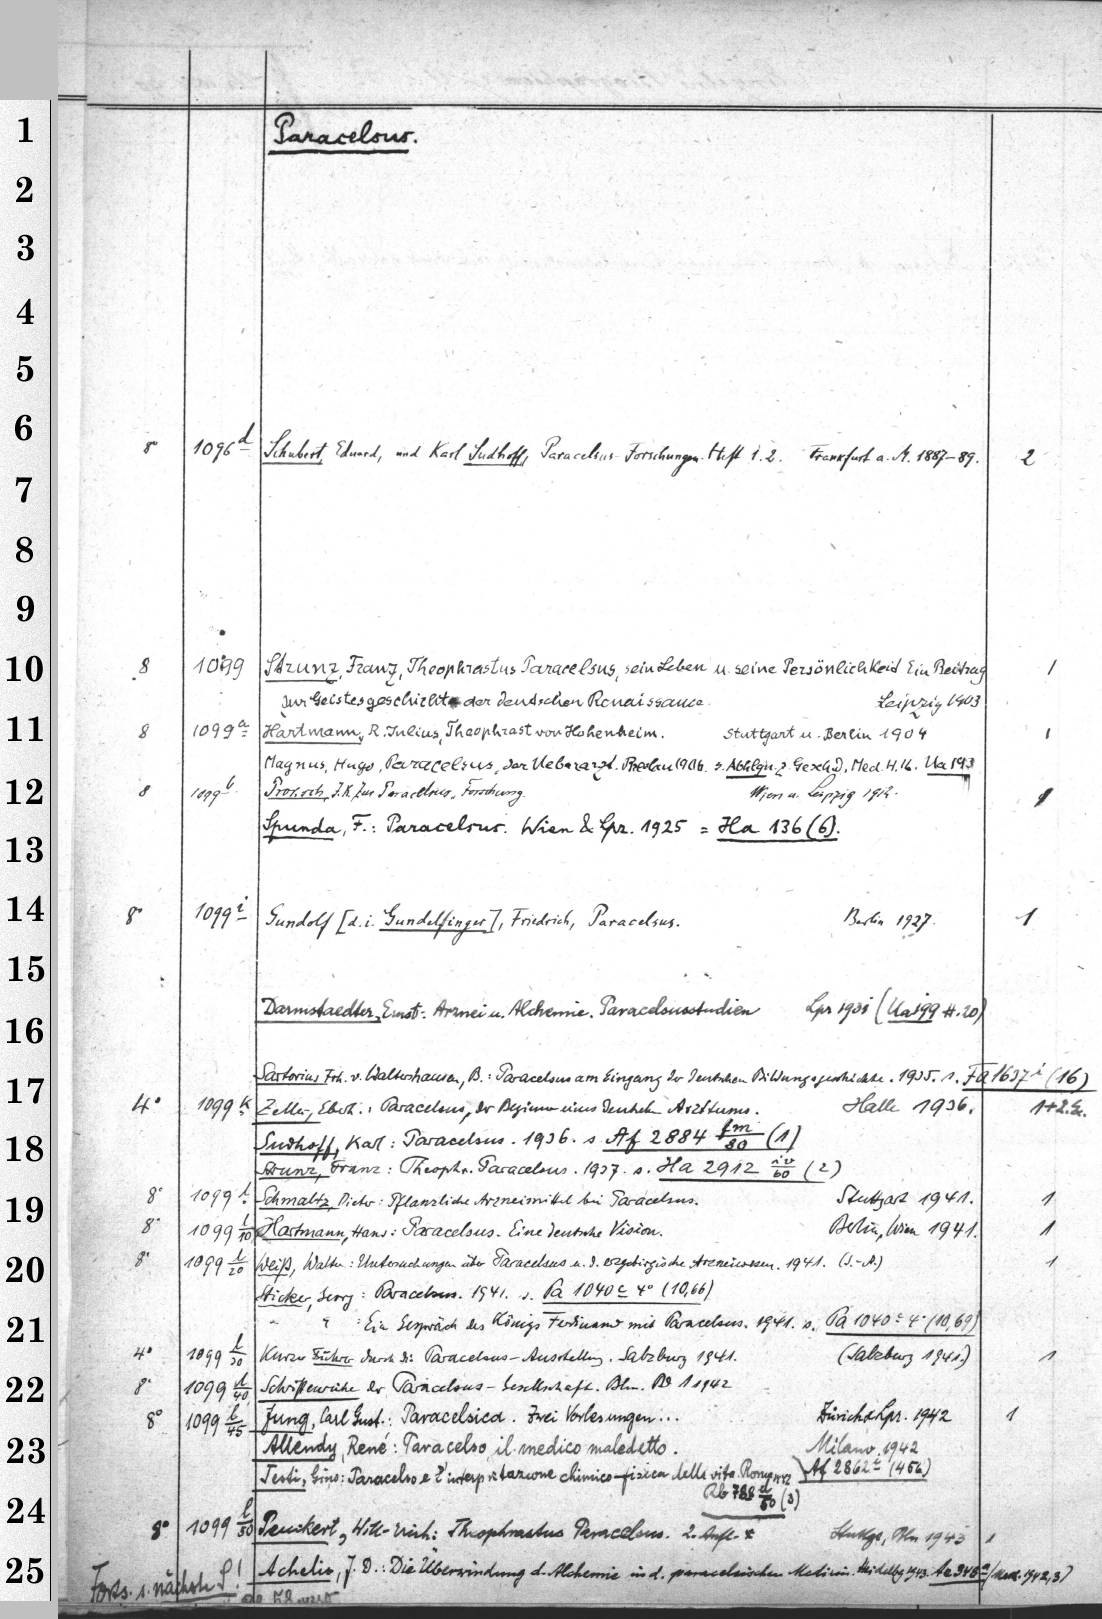 1
Paracelsus.
2
3
4
5
6
8° 1096 d Schubert, Eduard, und Karl Sudhoff, Paracelsus-Forschungen. Heft 1. 2. Frankfurt a. M. 1887-89. 2
7
8
9
10
8 1099 Strunz, Franz, Theophrastus Paracelsus, sein Leben u. seine Persönlichkeit. Ein Beitrag 1
zur Geistesgeschichte der deutschen Renaissance. Leipzig 1903
11
8 1099 a Hartmann, R. Julius, Theophrast von Hohenheim. Stuttgart u. Berlin 1904 1
Magnus, Hugo, Paracelsus, der Ueberarzt. Breslau 1906. s. Abhlgn. z. Gesch. d. Med. H. 16. Ua 193
12
8 1099 b Proksch, J. K. Zur Paracelsus-Forschung. Wien u. Leipzig 1912.
Spunda, F.: Paracelsus. Wien & Lpz. 1925 = Ha 136 (6).
13
14
8° 1099 i Gundolf [d. i. Gundelfinger], Friedrich, Paracelsus. Berlin 1927. 1
15
Darmstaedter, Ernst: Arznei u. Alchemie. Paracelsusstudien Lpz 1931 (Ua 199 H. 20)
16
Sartorius Frh. v. Waltershausen, B.: Paracelsus am Eingang der deutschen Bildungsgeschichte. 1935. s. Fa 1637 i (16)
17
4° 1099 k Zeller, Eberh.: Paracelsus, der Beginn eines deutschen Arzttums. Halle 1936. 1+2.
Sudhoff, Karl: Paracelsus. 1936. s. Af 2884 fm/80 (1)
18
Strunz, Franz: Theophr. Paracelsus. 1937. s. Ha 2912 iv/60 (2)
8° 1099 l. Schmaltz, Dieter: Pflanzliche Arzneimittel bei Paracelsus. Stuttgart 1941. 1
19
8° 1099 l/10 Hartmann, Hans: Paracelsus. Eine deutsche Vision. Berlin, Wien 1941. 1
20
8° 1099 l/20 Weiß, Walter: Untersuchungen über Paracelsus u. d. erzgebirgische Arzneiwesen. 1941. (S.-A.) 1
Sticker, Georg: Paracelsus. 1941. s. Pa 1040 c 4° (10,66)
21
" " : Ein Gespräch des Königs Ferdinand mit Paracelsus. 1941. s. Pa 1040 c 4° (10,69)
4° 1099 l/30 Kurzer Führer durch die Paracelsus-Ausstellung. Salzburg 1941. (Salzburg 1941.) 1
22
8° 1099 l/40 Schriftenreihe der Paracelsus-Gesellschaft. Bln. Bd 1 1942
8° 1099 l/45 Jung, Carl Gust.: Paracelsica. Zwei Vorlesungen... Zürich & Lpz. 1942 1
23
Allendy, René: Paracelso il medico maledetto. Milano 1942 Af 2862 (456)
Testi, Gino: Paracelso e l'interpretazione chimico-fisica della vita. Roma 1942
Ab 788 d/50 (3)
24
8° 1099 l/50 Peuckert, Will-Erich: Theophrastus Paracelsus. 2. Aufl. Stuttg., Bln 1943 1
25
Achelis, J. D.: Die Überwindung d. Alchemie in d. paracelsischen Medizin. Heidelbg 1943. Ae 348 (1942,3)
Forts. s. nächste S!